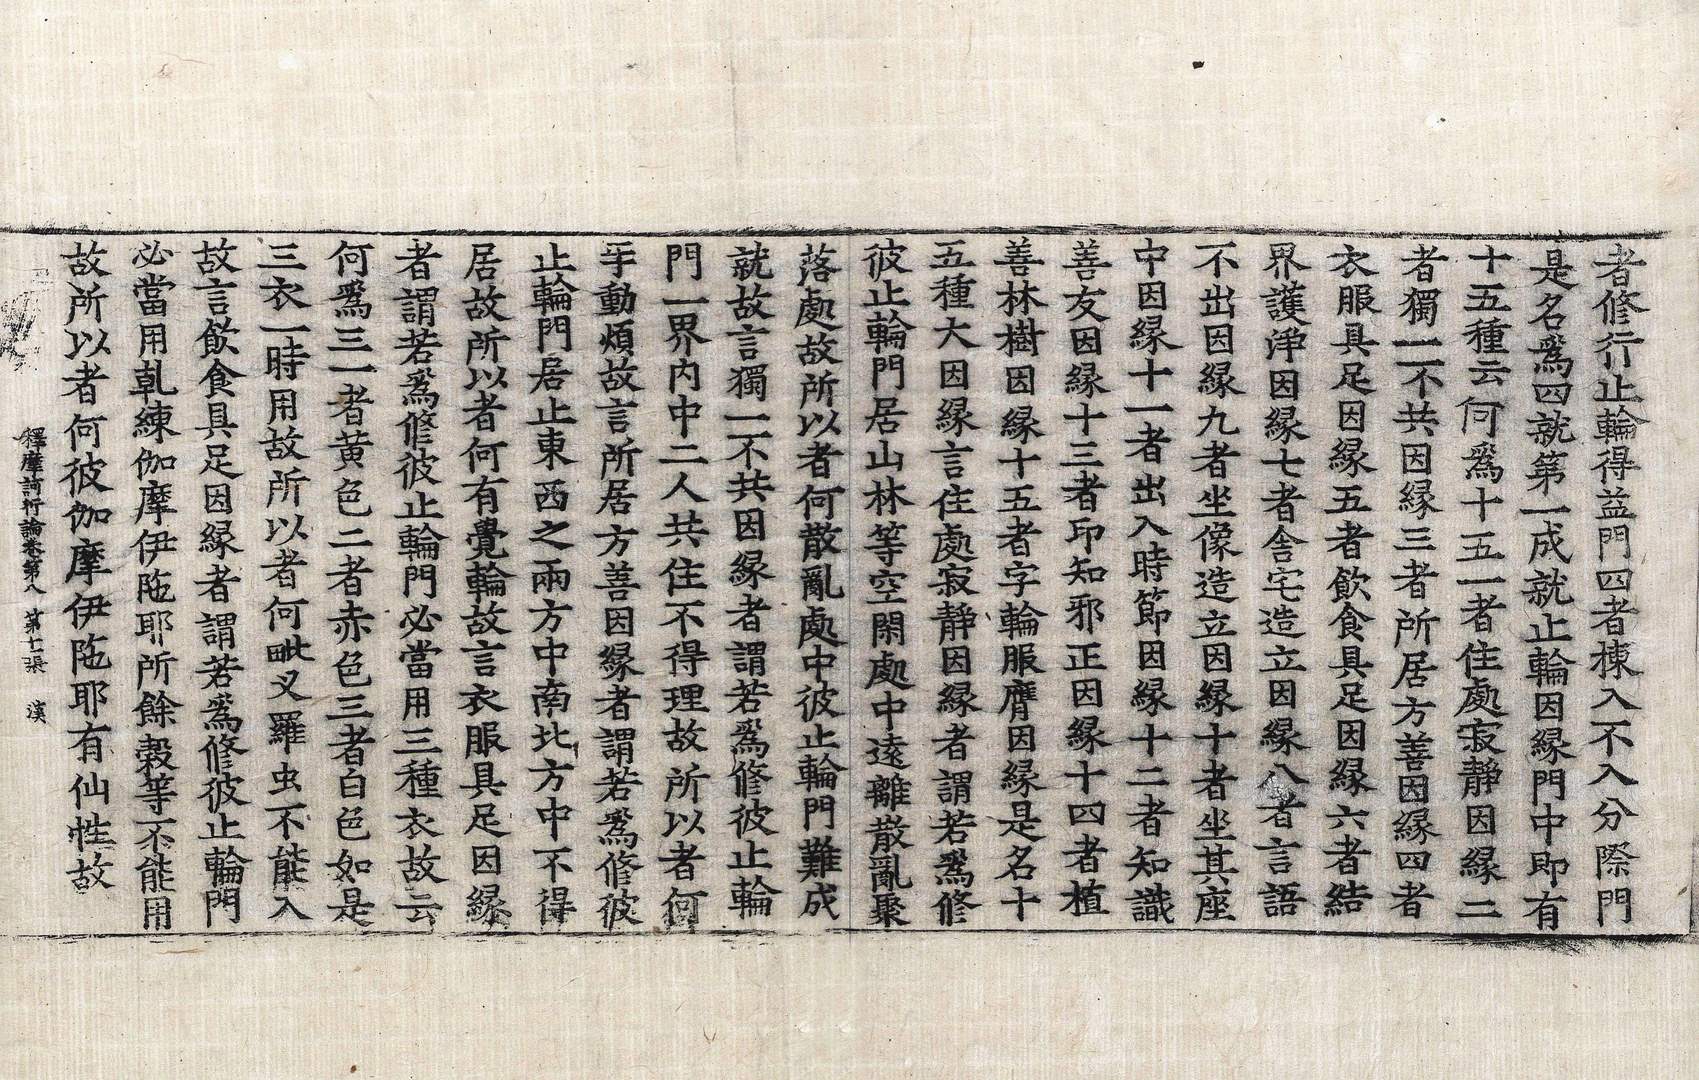 者修行止輪得益門四者棟入不入分際門
是名爲四就第一成就止輪因縁門中即有
十五種云何爲十五一者住處寂靜因縁二
者獨一不共因縁三者所居方善因縁四者
衣服具足因縁五者飲食具足因縁六者結
界護淨因縁七者舍宅造立因縁八者言語
不出因縁九者坐像造立因縁十者坐其座
中因縁十一者出入時節因縁十二者知識
善友因縁十三者印知邪正因縁十四者植
善林樹因縁十五者字輪服膺因縁是名十
五種大因縁言住處寂靜因縁者謂若爲修
彼止輪門居山林等空閑處中遠離散亂聚
落處故所以者何散亂處中彼止輪門難成
就故言獨一不共因縁者謂若爲修彼止輪
門一界內中二人共住不得理故所以者何
乎動煩故言所居方善因縁者謂若爲修彼
止輪門居止東西之兩方中南北方中不得
居故所以者何有覺輪故言衣服具足因縁
者謂若爲修彼止輪門必當用三種衣故云
何爲三一者黃色二者赤色三者白色如是
三衣一時用故所以者何毗乂羅虫不能入
故言飲食具足因縁者謂若爲修彼止輪門
必當用乹練伽摩伊陁耶所餘穀等不能用
故所以者何彼伽摩伊陁耶有仙性故
釋摩訶衍論卷第八 第十一張 漢